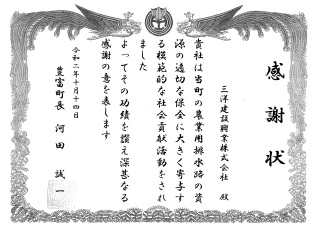 感謝状
三洋建設興業株式会社 殿
貴社は当町の農業用排水路の資
源の適切な保全に大きく寄与す
る模範的な社会貢献活動をされ
ました
よってその功績を讃え深甚なる
感謝の意を表します
令和二年十月十四日
豊富町長 河田誠一